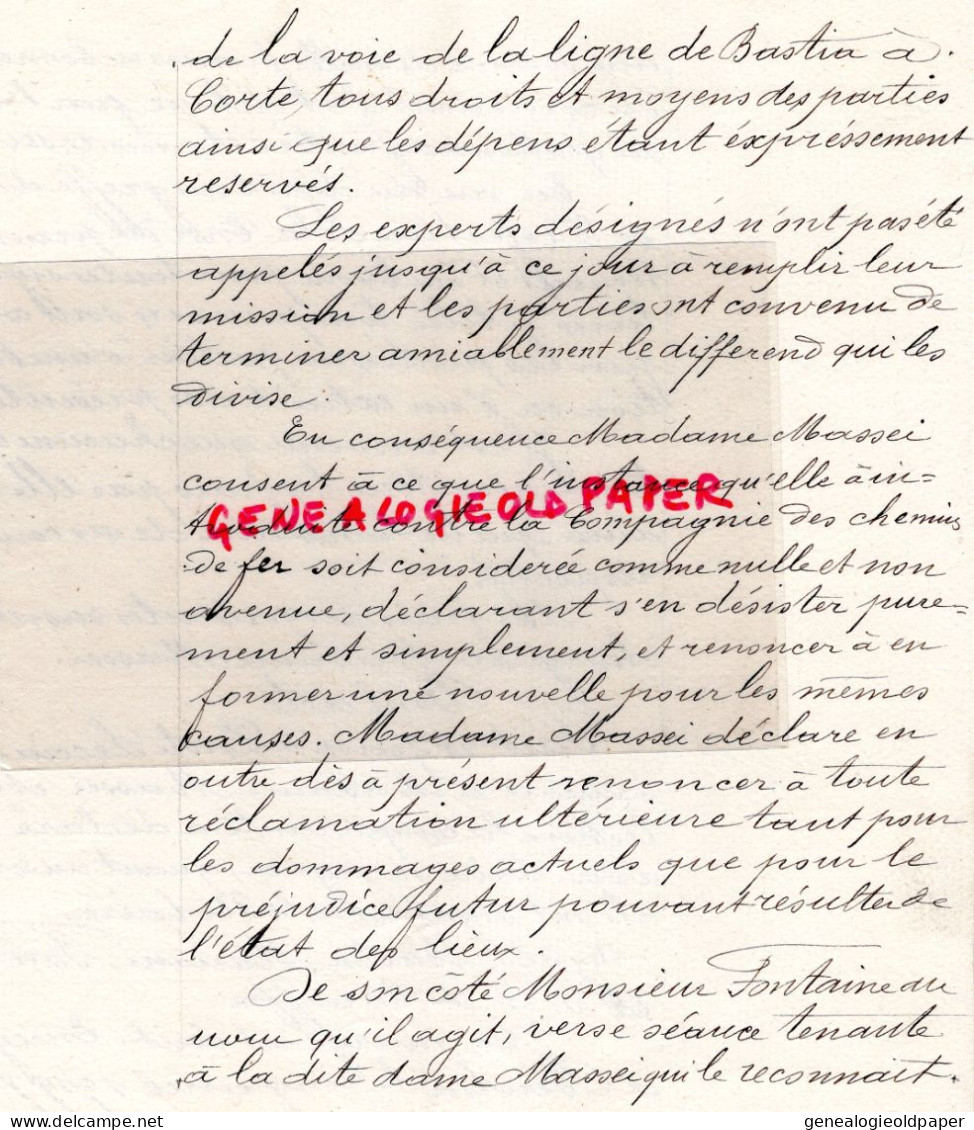 de la voie de la ligne de Bastia à
Corte, tous droits et moyens des parties
ainsi que les dépens étant éxpréssement
reservés.
Les experts désignés n'ont pas été
appelés jusqu'à ce jour à remplir leur
mission et les parties ont convenu de
terminer amiablement le differend qui les
divise
En conséquence Madame Massei
consent à ce que l'instance qu'elle à in=
GENEALOGIE OLD PAPER
troduite contre la Compagnie des chemins
de fer soit considerée comme nulle et non
avenue, déclarant s'en désister pure=
ment et simplement, et renoncer à en
former une nouvelle pour les mêmes
causes. Madame Massei déclare en
outre dès à présent renoncer à toute
réclamation ultérieure tant pour
les dommages actuels que pour le
préjudice futur pouvant résulter de
l'état des lieux.
De son côté Monsieur Fontaine au
nom qu'il agit, verse séance tenante
à la dite dame Massei qui le reconnait.
genealogieoldpaper